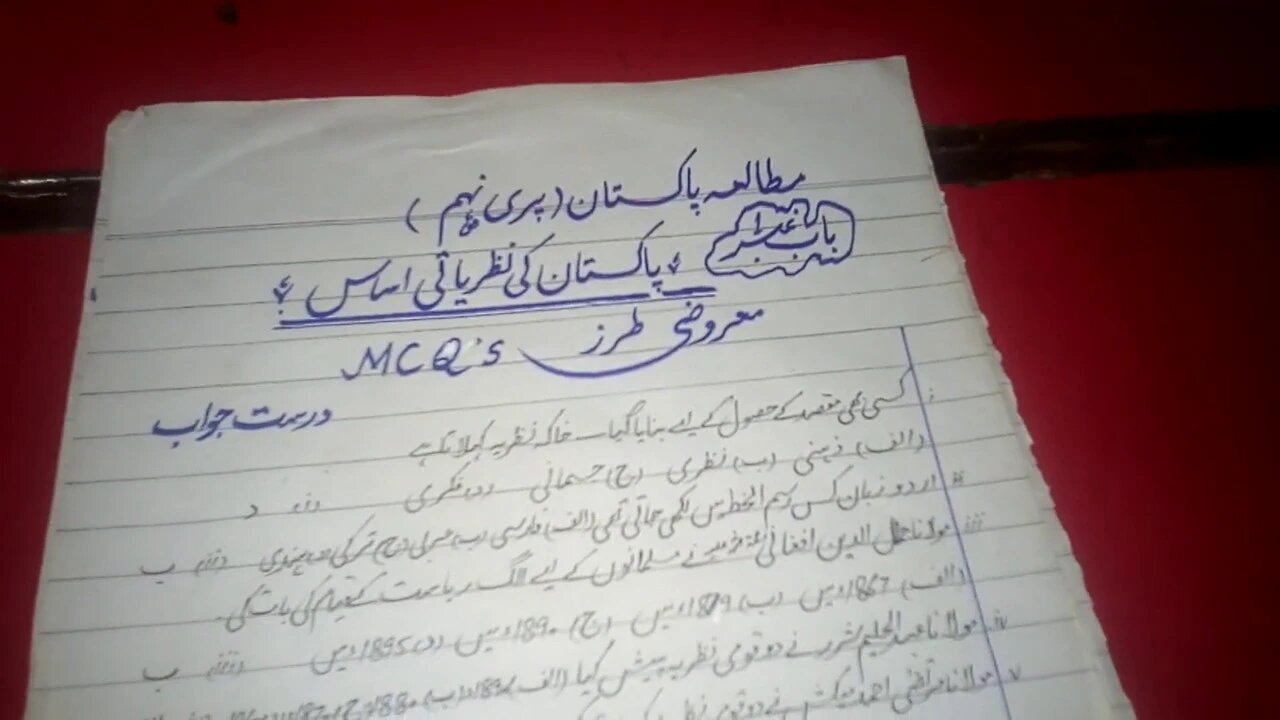 مطالعہ پاکستان (پری نہم)
باب نمبر 1 ؛ پاکستان کی نظریاتی اساس ؛
معروضی طرز MCQ's
درست جواب
i کسی بھی مقصد کے حصول کے لیے بنایا گیا۔ خاکہ نظریہ کہلاتا ہے
(الف) ذہنی (ب) نظری (ج) جسمانی (د) فکری (i) د
ii اردو زبان کس رسم الخط میں لکھی جاتی تھی (الف) فارسی (ب) عربی (ج) ترکی (د) ہندی (ii) ب
iii مولانا جمال الدین افغانیؒ نے مسلمانوں کے لیے الگ ریاست کے قیام کی بات کی۔
(الف) 1867ء میں (ب) 1879ء میں (ج) 1890ء میں (د) 1895ء میں (iii) ب
iv مولانا عبدالحلیم شرر نے دو قومی نظریہ پیش کیا (الف) 1890ء (ب) 1880ء (ج)
v مولانا مرتضیٰ احمد میکش نے دو قومی